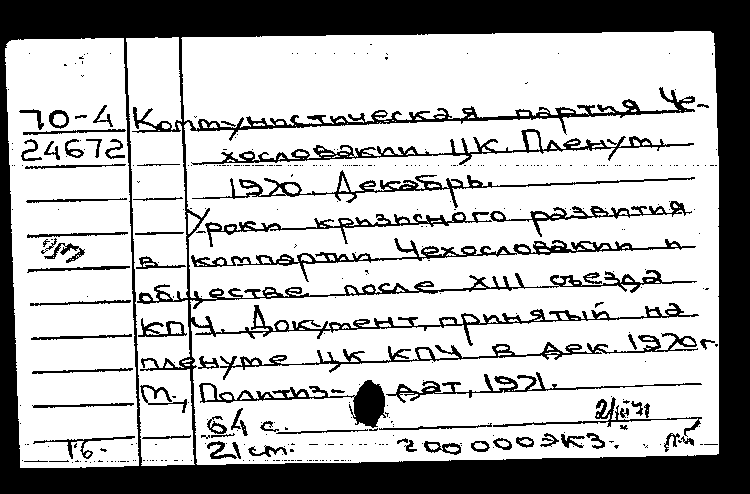 70-4 Коммунистическая партия Че-
24672 хословакии. ЦК. Пленум,
1970. Декабрь.
Уроки кризисного развития
в компартии Чехословакии и
обществе после XIII съезда
КПЧ. Документ, принятый на
пленуме ЦК КПЧ в дек. 1970г.
М., Политиз- дат, 1971.
64 с. 2/III 71
21 см. 200 000экз.
1б.